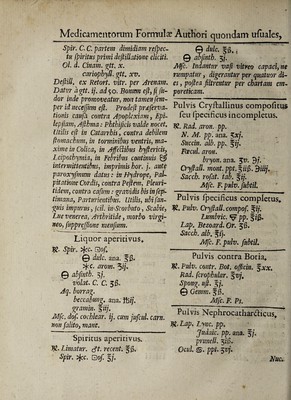 Medicamentorum Formulæ Authori quondam usuales,
Spir. C. C. partem dimidiam respec-
tu spiritus primi destillatione eliciti.
Ol. d. Cinam. gtt. x.
cariophyll. gtt. xv.
Destill. ex Retort. vitr. per Arenam.
Datur à gtt. ij. ad 50. Bonum est, si su-
dor inde promoveatur, non tamen sem-
per id necessum est. Prodest præserva-
tionis causâ contra Apoplexiam, Epi-
lepsiam, Asthma: Phthisicis valde nocet.
Utilis est in Catarrhis, contra debilem
stomachum, in torminibus ventris, ma-
xime in Colica, in Affectibus hystericis,
Leipothymia, in Febribus continuis &
intermittentibus, imprimis hor. j. ante
paroxysmum datus: in Hydrope, Pal-
pitatione Cordis, contra Pestem, Pleuri-
tidem, contra casum: gravidis bis in sep-
timana, Parturientibus. Utilis, ubi san-
guis impurus, scil. in Scorbuto, Scabie,
Lue venerea, Arthritide, morbo virgi-
neo, suppressione mensium.
Liquor aperitivus.
℞. Spir. ✶c. ʒvj.
🜔 dulc. ana. ℥ß.
✶c. arom. ʒij.
🜔 absinth. ʒj.
volat. C. C. ʒß.
Aq. borrag.
beccabung. ana. ℔ij.
gramin. ℥iij.
Msc. dos. cochlear. ij. cum juscul. carn.
non salito, mant.
Spiritus aperitivus.
℞. Limatur. ♂t. recent. ℥ß.
Spir. ✶c. ʒj.
🜔 dulc. ℥ß.
🜔 absinth. ʒj.
Msc. Indantur vasi vitreo capaci, ne
rumpatur, digerantur per quatuor di-
es, postea filtrentur per chartam em-
poreticam.
Pulvis Crystallinus compositus
seu specificus incompletus.
℞. Rad. aron. pp.
N. M. pp. ana. ℥xj.
Succin. alb. pp. ℥ij.
Fæcul. aron.
bryon. ana. ℥v. ʒj.
Crystall. mont. ppt. ℥iiß. ʒiiij.
Sacch. rosat. tab. ℥ij.
Msc. F. pulv. subtil.
Pulvis specificus completus.
℞. Pulv. Crystall. compos. ℥ij.
Lumbric. 🜃 pp. ℥iß.
Lap. Bezoard. Or. ʒß.
Sacch. alb. ℥ij.
Msc. F. pulv. subtil.
Pulvis contra Bocia.
℞. Pulv. contr. Bot. officin. ℥xx.
Rad. scrophular. ℥vj.
Spong. ust. ℥j.
🜔 Gemm. ℥ß.
Msc. F. Ps.
Pulvis Nephrocatharcticus,
℞. Lap. Lync. pp.
Judaic. pp. ana. ℥j.
prunell. ℥iß.
Ocul. ♋. ppt. ℥vj.
Nuc.